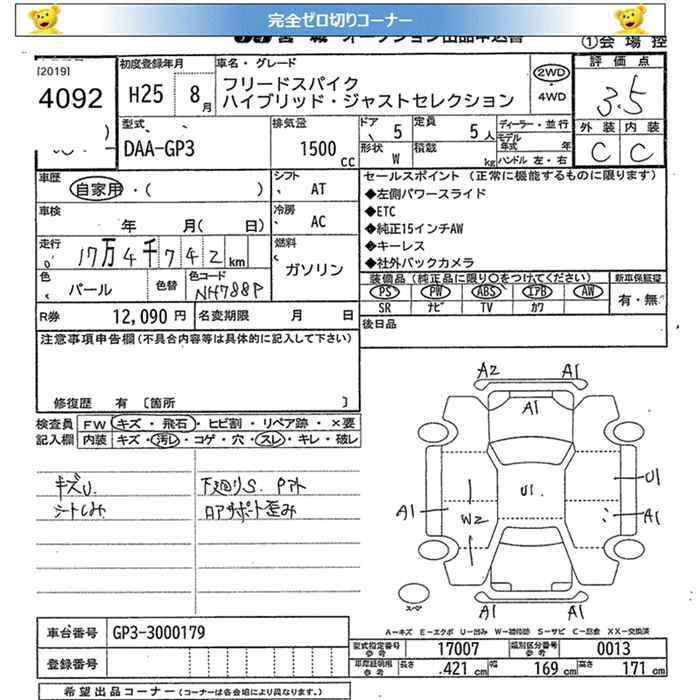 完全ゼロ切りコーナー
オークション出品申込書
①会場控
[2019]
4092
初度登録年月
H25 8月
車名・グレード
フリードスパイク
ハイブリッド・ジャストセレクション
2WD
・
4WD
評価点
3.5
外装 内装
C C
型式
DAA-GP3
排気量
1500 cc
ドア 5
形状 W
定員 5人
積載 kg
ディーラー・並行
モデル年式 年
ハンドル 左・右
車歴
自家用・( )
シフト
AT
車検
年 月( 日)
冷房
AC
走行
17万4千742 km
燃料
ガソリン
色
パール
色替
色コード
NH788P
R券 12,090円
名変期限 月 日
セールスポイント(正常に機能するものに限ります)
◆左側パワースライド
◆ETC
◆純正15インチAW
◆キーレス
◆社外バックカメラ
装備品(純正品に限り○をつけてください)
新車保証書
PS PW ABS エアB AW
有・無
SR ナビ TV カワ
後日品
注意事項申告欄(不具合内容等は具体的に記入して下さい)
修復歴 有 〔箇所 〕
検査員
記入欄
FW キズ・飛石・ヒビ割・リペア跡・×要
内装 キズ・汚レ・コゲ・穴・スレ・キレ・破レ
キズU.
シートしみ
下廻りS.
ロアサポート歪み
A2
A1
A1
U1
U1
A1
W2
A1
A1
A1
スペア
A-キズ E-エクボ U-凹み W-補修跡 S-サビ C-腐食 XX-交換済
車台番号 GP3-3000179
登録番号
型式指定番号 参考 17007
類別区分番号 参考 0013
車庫証明用 参考 長さ .421 cm 幅 169 cm 高さ 171 cm
希望出品コーナー(コーナーは各会場により異なります。)